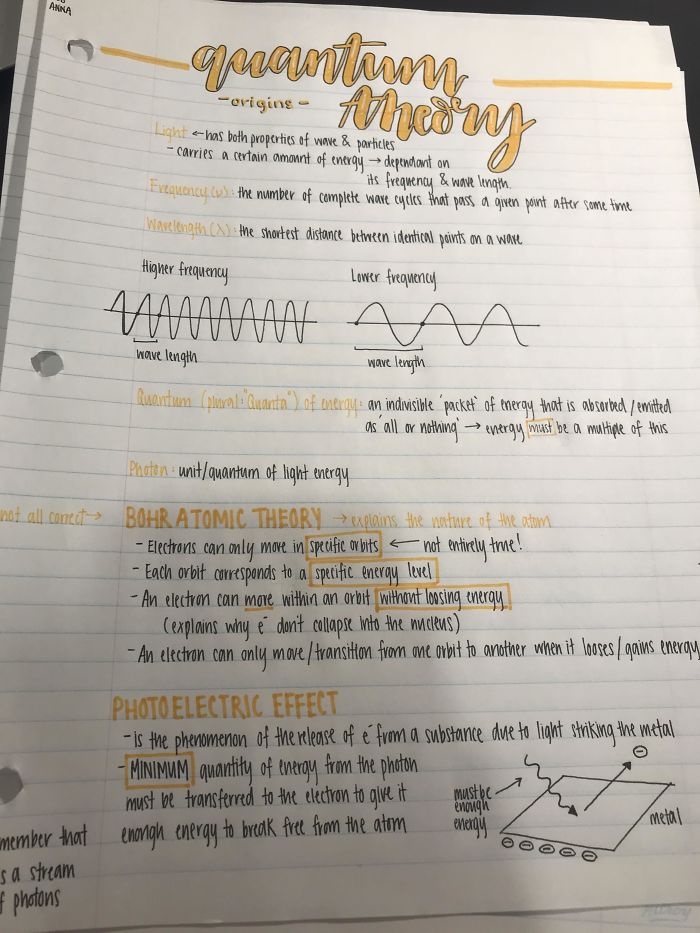 ANNA
quantum
-origins- theory
Light ← has both properties of wave & particles
- carries a certain amount of energy → dependant on
its frequency & wave length.
Frequency (ν): the number of complete wave cycles that pass a given point after some time
Wavelength (λ): the shortest distance between identical points on a wave
Higher frequency
Lower frequency
wave length
wave length
Quantum (plural: "Quanta") of energy: an indivisible 'packet' of energy that is absorbed/emitted
as 'all or nothing' → energy must be a multiple of this
Photon: unit/quantum of light energy
not all correct →
BOHR ATOMIC THEORY → explains the nature of the atom
- Electrons can only move in specific orbits ← not entirely true!
- Each orbit corresponds to a specific energy level
- An electron can move within an orbit without loosing energy
(explains why e⁻ don't collapse into the nucleus)
- An electron can only move/transition from one orbit to another when it looses/gains energy
PHOTOELECTRIC EFFECT
- is the phenomenon of the release of e⁻ from a substance due to light striking the metal
- MINIMUM quantity of energy from the photon
must be transferred to the electron to give it
enough energy to break free from the atom
must be
enough
energy
metal
member that
s a stream
f photons